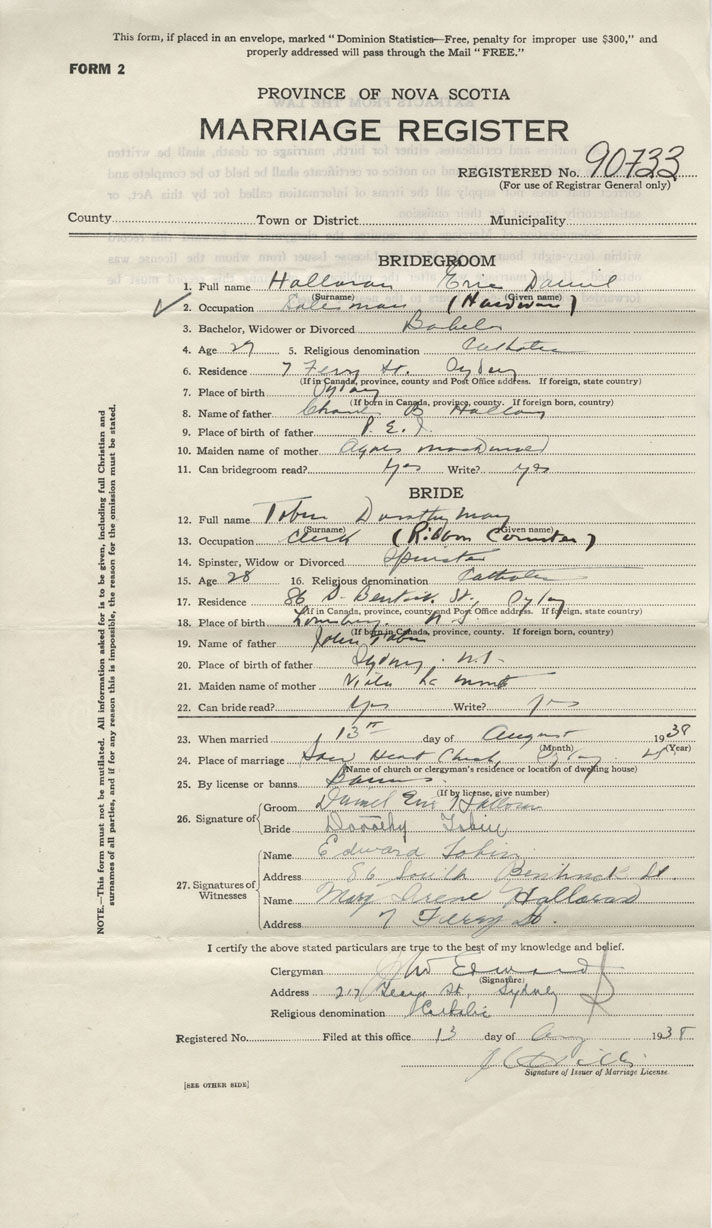 This form, if placed in an envelope, marked "Dominion Statistics—Free, penalty for improper use $300," and
properly addressed will pass through the Mail "FREE."
FORM 2
PROVINCE OF NOVA SCOTIA
MARRIAGE REGISTER
REGISTERED No. 90733
(For use of Registrar General only)
County Town or District Municipality
BRIDEGROOM
1. Full name Halloran Eric Daniel
(Surname) (Given name)
2. Occupation Salesman (Hardware)
3. Bachelor, Widower or Divorced Bachelor
4. Age 29 5. Religious denomination Catholic
6. Residence 7 Ferry St. Sydney
(If in Canada, province, county and Post Office address. If foreign, state country)
7. Place of birth Sydney
(If born in Canada, province, county. If foreign born, country)
8. Name of father B Halloran
9. Place of birth of father P. E. I.
10. Maiden name of mother Agnes
11. Can bridegroom read? yes Write? yes
BRIDE
12. Full name Tobin Dorothy May
(Surname) (Given name)
13. Occupation Clerk (Ribbon Counter)
14. Spinster, Widow or Divorced Spinster
15. Age 28 16. Religious denomination Catholic
17. Residence 86 S. Bentick St., Sydney
(If in Canada, province, county and Post Office address. If foreign, state country)
18. Place of birth Louisburg N. S.
(If born in Canada, province, county. If foreign born, country)
19. Name of father John Tobin
20. Place of birth of father Sydney. N.S.
21. Maiden name of mother
22. Can bride read? yes Write? yes
23. When married 13th day of August 1938
(Month) (Year)
24. Place of marriage Heart Church, Sydney
(Name of church or clergyman's residence or location of dwelling house)
25. By license or banns Banns
(If by license, give number)
26. Signature of
Groom Daniel Eric Halloran
Bride Dorothy Tobin
27. Signatures of Witnesses
Name Edward Tobin
Address 86 South Bentinck St.
Name Mary Irene Halloran
Address 7 Ferry St.
I certify the above stated particulars are true to the best of my knowledge and belief.
Clergyman
(Signature)
Address 217 George St. Sydney
Religious denomination Catholic
Registered No. Filed at this office 13 day of Aug 1938
Signature of Issuer of Marriage License.
[SEE OTHER SIDE]
NOTE.—This form must not be mutilated. All information asked for is to be given, including full Christian and
surnames of all parties, and if for any reason this is impossible, the reason for the omission must be stated.